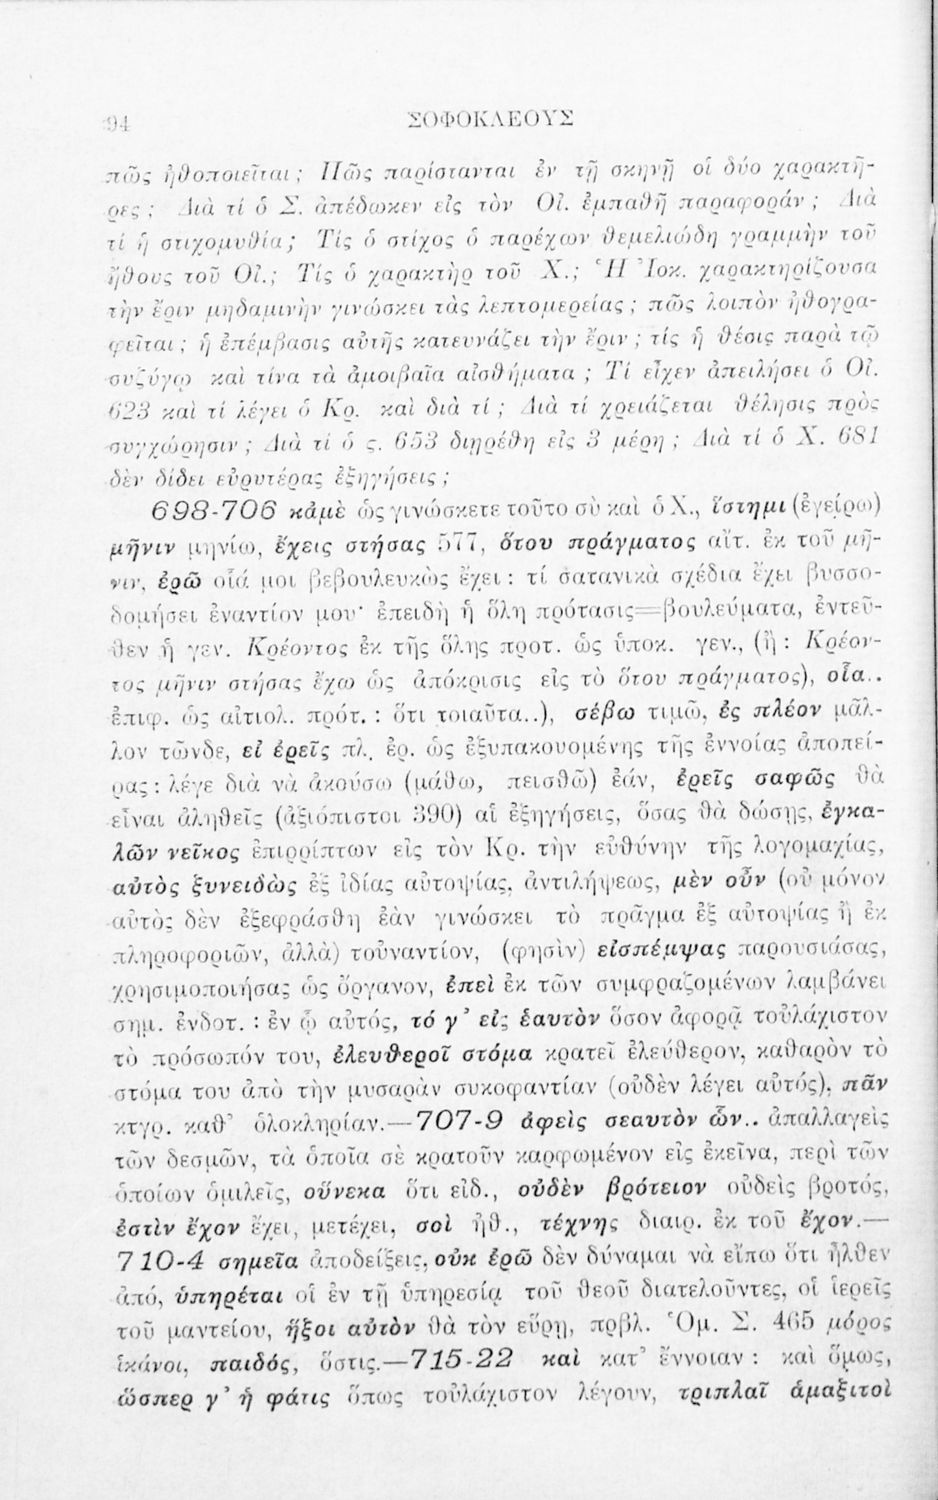 94 ΣΟΦΟΚΛΕΟΥΣ
πῶς ἠθοποιεῖται; Πῶς παρίστανται ἐν τῇ σκηνῇ οἱ δύο χαρακτῆ-
ρες; Διὰ τί ὁ Σ. ἀπέδωκεν εἰς τὸν Οἰ. ἐμπαθῆ παραφοράν; Διὰ
τί ἡ στιχομυθία; Τίς ὁ στίχος ὁ παρέχων θεμελιώδη γραμμὴν τοῦ
ἤθους τοῦ Οἰ.; Τίς ὁ χαρακτὴρ τοῦ Χ.; Ἡ Ἰοκ. χαρακτηρίζουσα
τὴν ἔριν μηδαμινὴν γινώσκει τὰς λεπτομερείας; πῶς λοιπὸν ἠθογρα-
φεῖται; ἡ ἐπέμβασις αὐτῆς κατευνάζει τὴν ἔριν; τίς ἡ θέσις παρὰ τῷ
συζύγῳ καὶ τίνα τὰ ἀμοιβαῖα αἰσθήματα; Τί εἶχεν ἀπειλήσει ὁ Οἰ.
623 καὶ τί λέγει ὁ Κρ. καὶ διὰ τί; Διὰ τί χρειάζεται θέλησις πρὸς
συγχώρησιν; Διὰ τί ὁ ς. 653 διῃρέθη εἰς 3 μέρη; Διὰ τί ὁ Χ. 681
δὲν δίδει εὐρυτέρας ἐξηγήσεις;
698-706 κἀμὲ ὡς γινώσκετε τοῦτο σὺ καὶ ὁ Χ., ἵστημι (ἐγείρω)
μῆνιν μηνίω, ἔχεις στήσας 577, ὅτου πράγματος αἴτ. ἐκ τοῦ μῆ-
νιν, ἐρῶ οἷά μοι βεβουλευκὼς ἔχει: τί σατανικὰ σχέδια ἔχει βυσσο-
δομήσει ἐναντίον μου· ἐπειδὴ ἡ ὅλη πρότασις=βουλεύματα, ἐντεῦ-
θεν ἡ γεν. Κρέοντος ἐκ τῆς ὅλης προτ. ὡς ὑποκ. γεν., (ἢ: Κρέον-
τος μῆνιν στήσας ἔχω ὡς ἀπόκρισις εἰς τὸ ὅτου πράγματος), οἷα..
ἐπιφ. ὡς αἰτιολ. πρότ.: ὅτι τοιαῦτα..), σέβω τιμῶ, ἐς πλέον μᾶλ-
λον τῶνδε, εἰ ἐρεῖς πλ. ἐρ. ὡς ἐξυπακουομένης τῆς ἐννοίας ἀποπεί-
ρας: λέγε διὰ νὰ ἀκούσω (μάθω, πεισθῶ) ἐάν, ἐρεῖς σαφῶς θὰ
εἶναι ἀληθεῖς (ἀξιόπιστοι 390) αἱ ἐξηγήσεις, ὅσας θὰ δώσῃς, ἐγκα-
λῶν νεῖκος ἐπιρρίπτων εἰς τὸν Κρ. τὴν εὐθύνην τῆς λογομαχίας,
αὐτὸς ξυνειδὼς ἐξ ἰδίας αὐτοψίας, ἀντιλήψεως, μὲν οὖν (οὐ μόνον
αὐτὸς δὲν ἐξεφράσθη ἐὰν γινώσκει τὸ πρᾶγμα ἐξ αὐτοψίας ἢ ἐκ
πληροφοριῶν, ἀλλὰ) τοὐναντίον, (φησὶν) εἰσπέμψας παρουσιάσας,
χρησιμοποιήσας ὡς ὄργανον, ἐπεὶ ἐκ τῶν συμφραζομένων λαμβάνει
σημ. ἐνδοτ.: ἐν ᾧ αὐτός, τό γ' εἰς ἑαυτὸν ὅσον ἀφορᾷ τοὐλάχιστον
τὸ πρόσωπόν του, ἐλευθεροῖ στόμα κρατεῖ ἐλεύθερον, καθαρὸν τὸ
στόμα του ἀπὸ τὴν μυσαρὰν συκοφαντίαν (οὐδὲν λέγει αὐτός), πᾶν
κτγρ. καθ' ὁλοκληρίαν.—707-9 ἀφεὶς σεαυτὸν ὧν.. ἀπαλλαγεὶς
τῶν δεσμῶν, τὰ ὁποῖα σὲ κρατοῦν καρφωμένον εἰς ἐκεῖνα, περὶ τῶν
ὁποίων ὁμιλεῖς, οὕνεκα ὅτι εἰδ., οὐδὲν βρότειον οὐδεὶς βροτός,
ἐστὶν ἔχον ἔχει, μετέχει, σοὶ ἠθ., τέχνης διαιρ. ἐκ τοῦ ἔχον.—
710-4 σημεῖα ἀποδείξεις, οὐκ ἐρῶ δὲν δύναμαι νὰ εἴπω ὅτι ἦλθεν
ἀπό, ὑπηρέται οἱ ἐν τῇ ὑπηρεσίᾳ τοῦ θεοῦ διατελοῦντες, οἱ ἱερεῖς
τοῦ μαντείου, ἥξοι αὐτὸν θὰ τὸν εὕρῃ, πρβλ. Ὁμ. Σ. 465 μόρος
ἱκάνοι, παιδός, ὅστις.—715-22 καὶ κατ' ἔννοιαν: καὶ ὅμως,
ὥσπερ γ' ἡ φάτις ὅπως τοὐλάχιστον λέγουν, τριπλαῖ ἁμαξιτοὶ